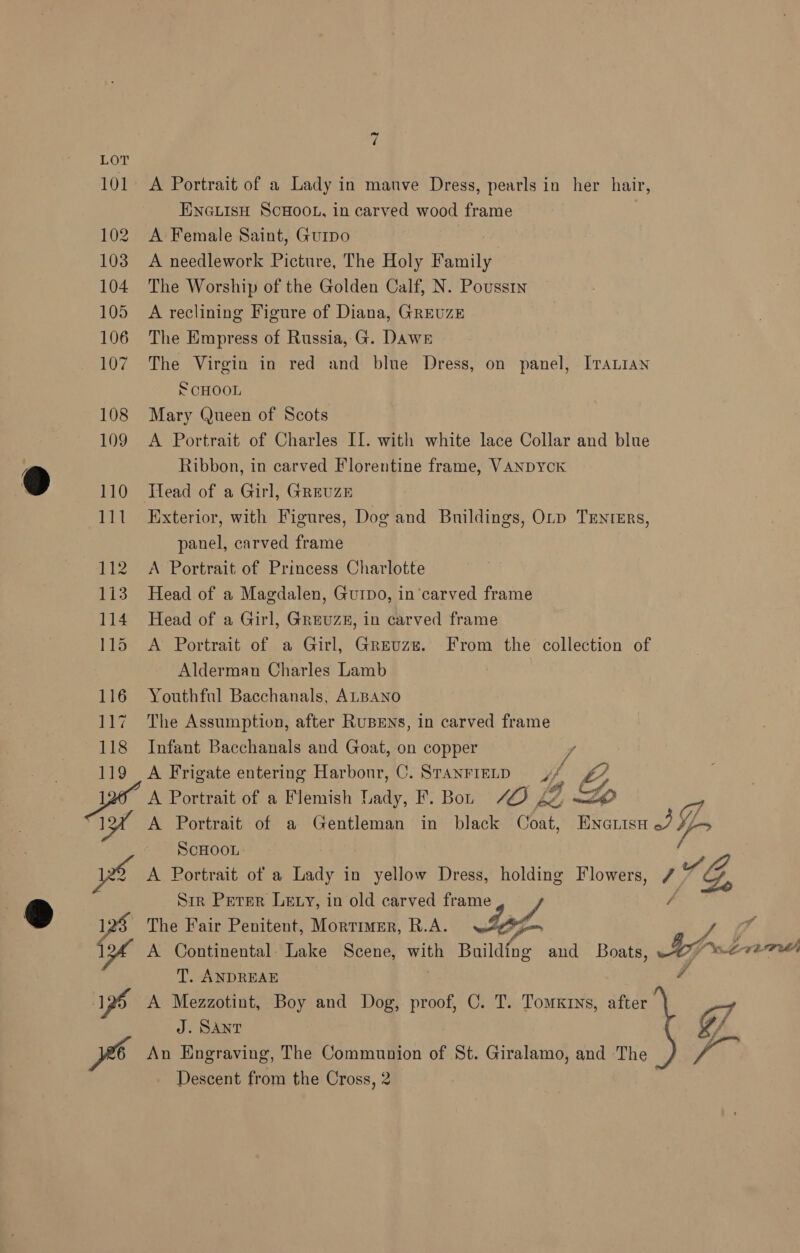 7
LOT
101 A Portrait of a Lady in mauve Dress, pearls in her hair,
ENGLISH SCHOOL, in carved wood frame
102 A Female Saint, GUIDO
103 A needlework Picture, The Holy Family
104 The Worship of the Golden Calf, N. POUSSIN
105 A reclining Figure of Diana, GREUZE
106 The Empress of Russia, G. DAWE
107 The Virgin in red and blue Dress, on panel, ITALIAN
SCHOOL
108 Mary Queen of Scots
109 A Portrait of Charles II. with white lace Collar and blue
Ribbon, in carved Florentine frame, VANDYCK
110 Head of a Girl, GREUZE
111 Exterior, with Figures, Dog and Buildings, OLD TENIERS,
panel, carved frame
112 A Portrait of Princess Charlotte
113 Head of a Magdalen, GUIDO, in carved frame
114 Head of a Girl, GREUZE, in carved frame
115 A Portrait of a Girl, GREUZE. From the collection of
Alderman Charles Lamb
116 Youthful Bacchanals, ALBANO
117 The Assumption, after RUBENS, in carved frame
118 Infant Bacchanals and Goat, on copper
119 A Frigate entering Harbour, C. STANFIELD
120 A Portrait of a Flemish Lady, F. BOL
121 A Portrait of a Gentleman in black Coat, ENGLISH
SCHOOL
122 A Portrait of a Lady in yellow Dress, holding Flowers,
SIR PETER LELY, in old carved frame
123 The Fair Penitent, MORTIMER, R.A.
124 A Continental Lake Scene, with Building and Boats,
T. ANDREAE
125 A Mezzotint, Boy and Dog, proof, C. T. TOMKINS, after
J. SANT
126 An Engraving, The Communion of St. Giralamo, and The
Descent from the Cross, 2